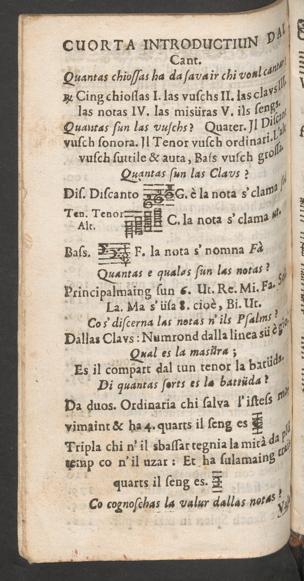 CUORTA INTRODUCTIUN DAL
Cant.
Quantas chiossas ha da savair chi voul cantar
℞ Cing chiossas I. las vuschs II. las clavs III.
las notas IV. las misüras V. ils sengs.
Quantas sun las vuschs? Quater. Jl Discant
vusch sonora. Jl Tenor vusch ordinari. L'alt
vusch suttile & auta, Bass vusch grossa.
Quantas sun las Clavs?
Dis. Discanto G. è la nota s'clama
Ten. Tenor
Alt. C. la nota s'clama ut.
Bass. F. la nota s'nomna Fà
Quantas e qualas sun las notas?
Principalmaing sun 6. Ut. Re. Mi. Fa. Sol
La. Ma s'üsa 8. cioè, Bi. Ut.
Co s'discerna las notas n'ils Psalms?
Dallas Clavs: Numrond dalla linea sü è
Qual es la masüra;
Es il compart dal tun tenor la battüda.
Di quantas sorts es la battüda?
Da duos. Ordinaria chi salva l'istess
vimaint & ha 4. quarts il seng es
Tripla chi n'il sbassar tegnia la mità da
temp co n'il uzar: Et ha sulamaing
quarts il seng es.
Co cognoschas la valur dallas notas?